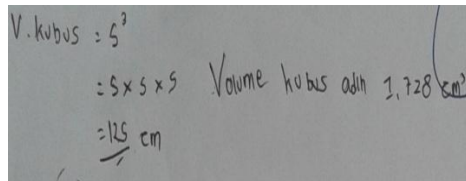 V. kubus = s³
= 5 x 5 x 5 Volume kubus adln 1,728 cm³
= 125 cm